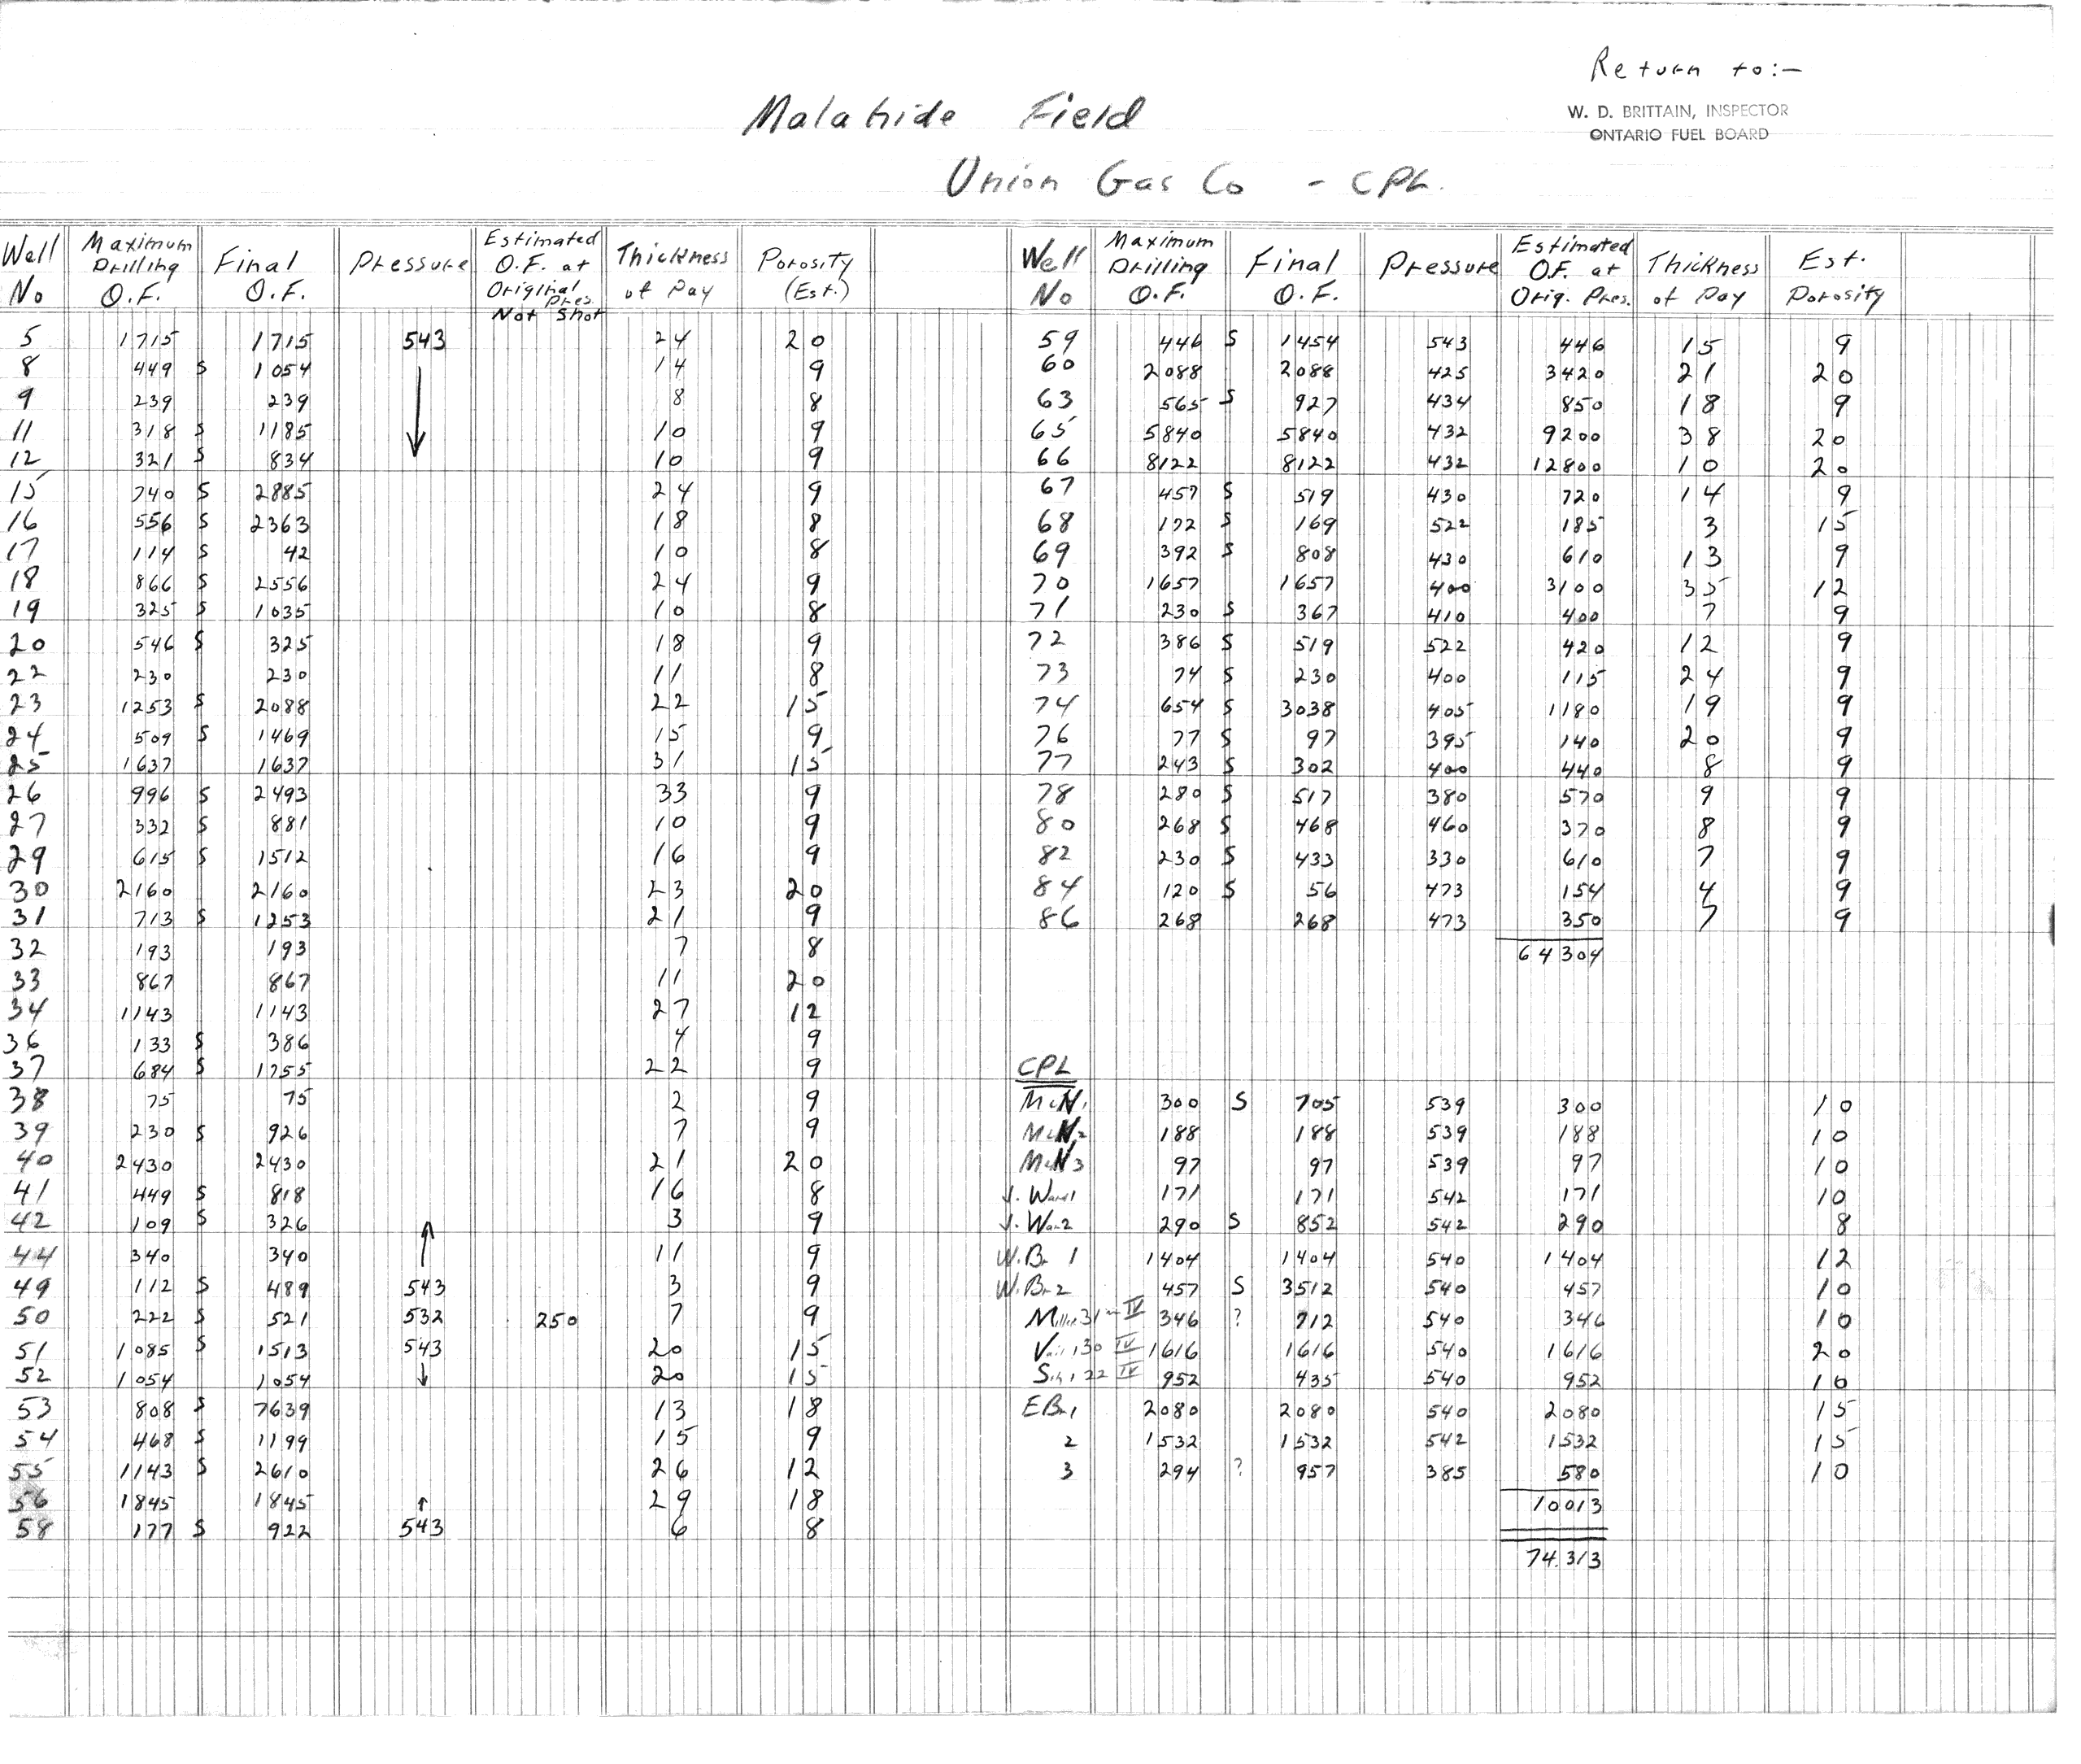 Return to:-
W. D. BRITTAIN, INSPECTOR
ONTARIO FUEL BOARD
Malahide Field
Union Gas Co - CPL.
Well No Maximum Drilling O.F. Final O.F. Pressure Estimated O.F. at Original Pres. Not Shot Thickness of Pay Porosity (Est.)
5 1715 1715 543 24 20
8 449 S 1054 14 9
9 239 239 8 8
11 318 S 1185 10 9
12 321 S 834 10 9
15 740 S 2885 24 9
16 556 S 2363 18 8
17 114 S 42 10 8
18 866 S 2556 24 9
19 325 S 1035 10 8
20 546 S 325 18 9
22 230 230 11 8
23 1253 S 2088 22 15
24 509 S 1469 15 9
25 1637 1637 31 15
26 996 S 2493 33 9
27 332 S 881 10 9
29 615 S 1512 16 9
30 2160 2160 23 20
31 713 S 1253 21 9
32 193 193 7 8
33 867 867 11 20
34 1143 1143 27 12
36 133 S 386 4 9
37 684 S 1255 22 9
38 75 75 2 9
39 230 S 926 7 9
40 2430 2430 21 20
41 449 S 818 16 8
42 109 S 326 3 9
44 340 340 11 9
49 112 S 489 543 3 9
50 222 S 521 532 250 7 9
51 1085 S 1513 543 20 15
52 1054 1054 20 15
53 808 S 7639 13 18
54 468 S 1199 15 9
55 1143 S 2610 26 12
56 1845 1845 29 18
58 177 S 922 543 6 8
Well No Maximum Drilling O.F. Final O.F. Pressure Estimated O.F. at Orig. Pres. Thickness of Pay Est. Porosity
59 446 S 1454 543 446 15 9
60 2088 2088 425 3420 21 20
63 565 S 927 434 850 18 9
65 5840 5840 432 9200 38 20
66 8122 8122 432 12800 10 20
67 457 S 519 430 720 14 9
68 172 S 169 522 185 3 15
69 392 S 808 430 610 13 9
70 1657 1657 400 3100 35 12
71 230 S 367 410 400 7 9
72 386 S 519 522 420 12 9
73 74 S 230 400 115 24 9
74 654 S 3038 405 1180 19 9
76 77 S 97 395 140 20 9
77 243 S 302 400 440 8 9
78 280 S 517 380 570 9 9
80 268 S 468 460 370 8 9
82 230 S 433 330 610 7 9
84 120 S 56 473 154 4 9
86 268 268 473 350 7 9
64304
CPL
McN. 1 300 S 705 539 300 10
McN. 2 188 188 539 188 10
McN 3 97 97 539 97 10
J. Ward 1 171 171 542 171 10
J. War 2 290 S 852 542 290 8
W. Br 1 1404 1404 540 1404 12
W. Br 2 457 S 3512 540 457 10
31 IV 346 ? 712 540 346 10
130 IV 1616 1616 540 1616 20
22 IV 952 435 540 952 10
E Br 1 2080 2080 540 2080 15
2 1532 1532 542 1532 15
3 294 ? 957 385 580 10
10013
74.313